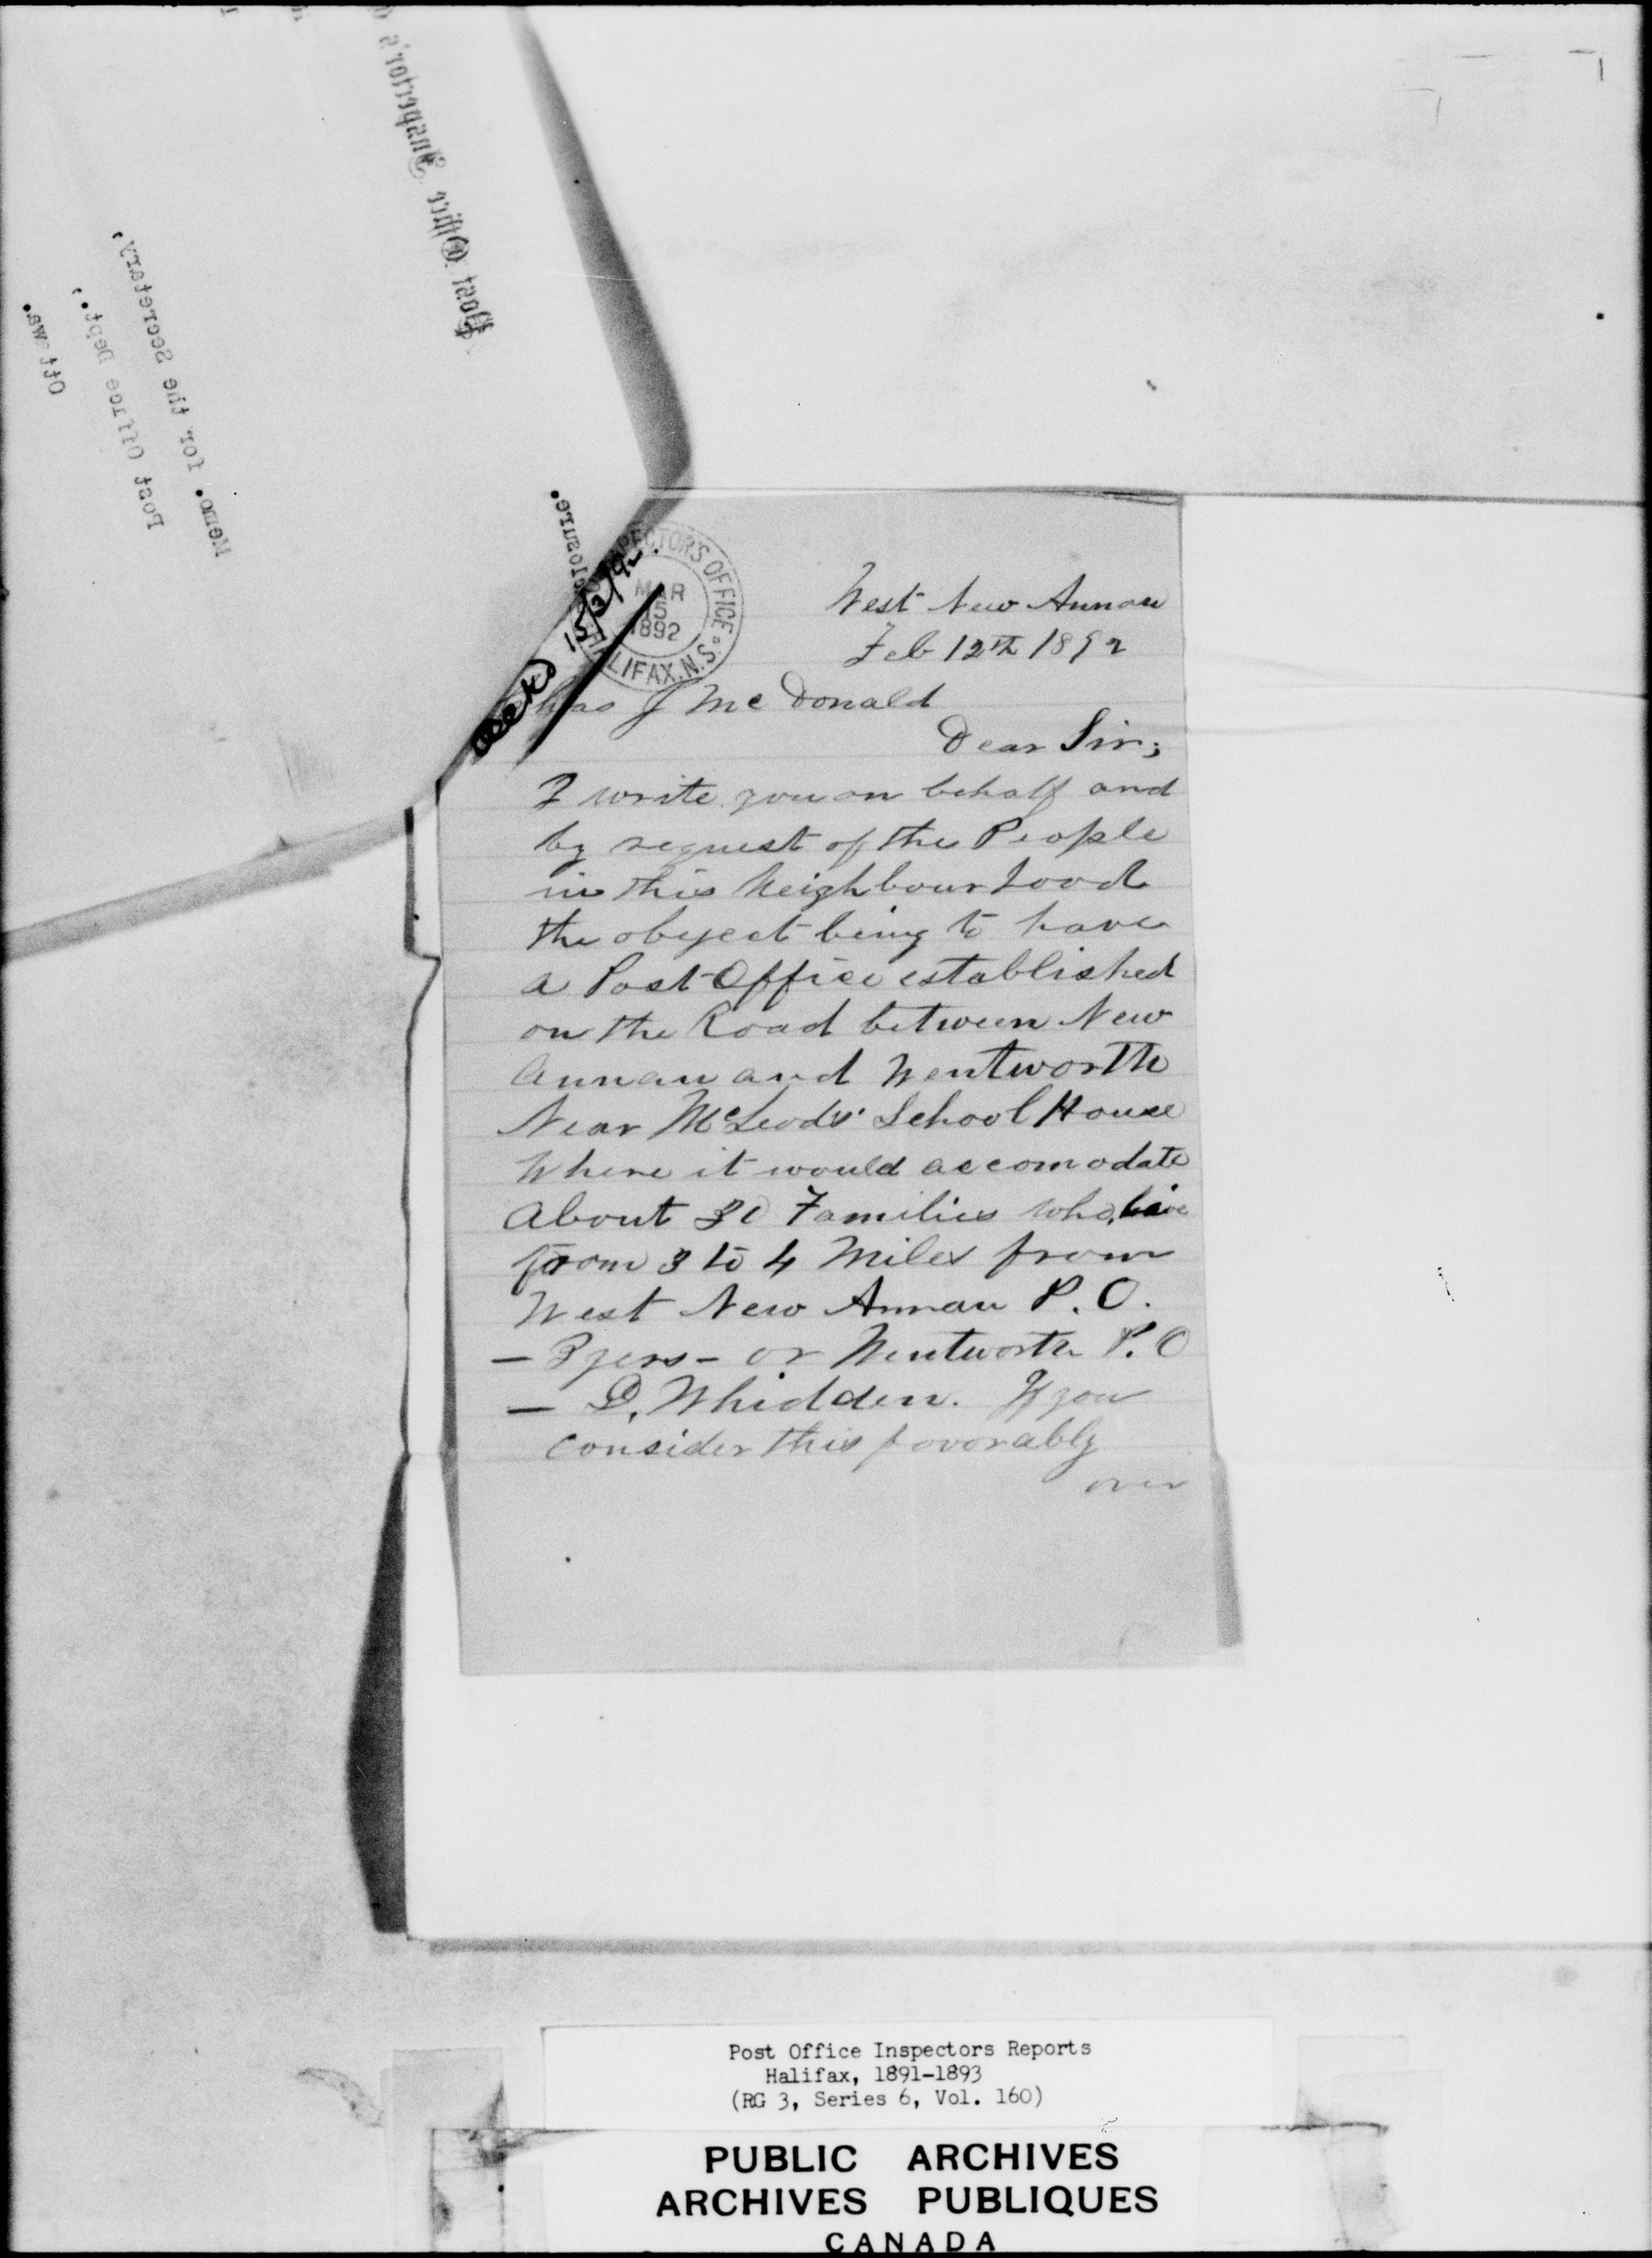 Post Office Inspector's
Memo. for the Secretary,
Post Office Dept.,
Ottawa.
closure.
ackd 15/3/92.
PECTOR'S OFFICE
MAR
15
1892
HALIFAX. N.S.
West New Annan
Feb 12th 1892
has J Mc Donald
Dear Sir;
I write you on behalf and
by request of the People
in this Neighbourhood
the obyect being to have
a Post Office established
on the Road between New
Annan and Wentworth
Near McLeods' School House
Where it would accomodate
About 30 Families who live
from 3 to 4 Miles from
West New Annan P.O.
— Byers – or Wentworth P.O
— D. Whidden. If you
consider this favorably
over
Post Office Inspectors Reports
Halifax, 1891-1893
(RG 3, Series 6, Vol. 160)
PUBLIC ARCHIVES
ARCHIVES PUBLIQUES
CANADA